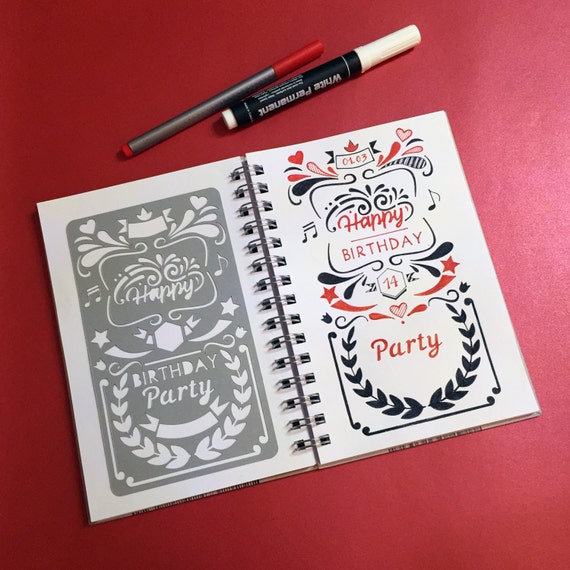 White Permanent
Happy
BIRTHDAY
Party
01.03
Happy
BIRTHDAY
14
Party